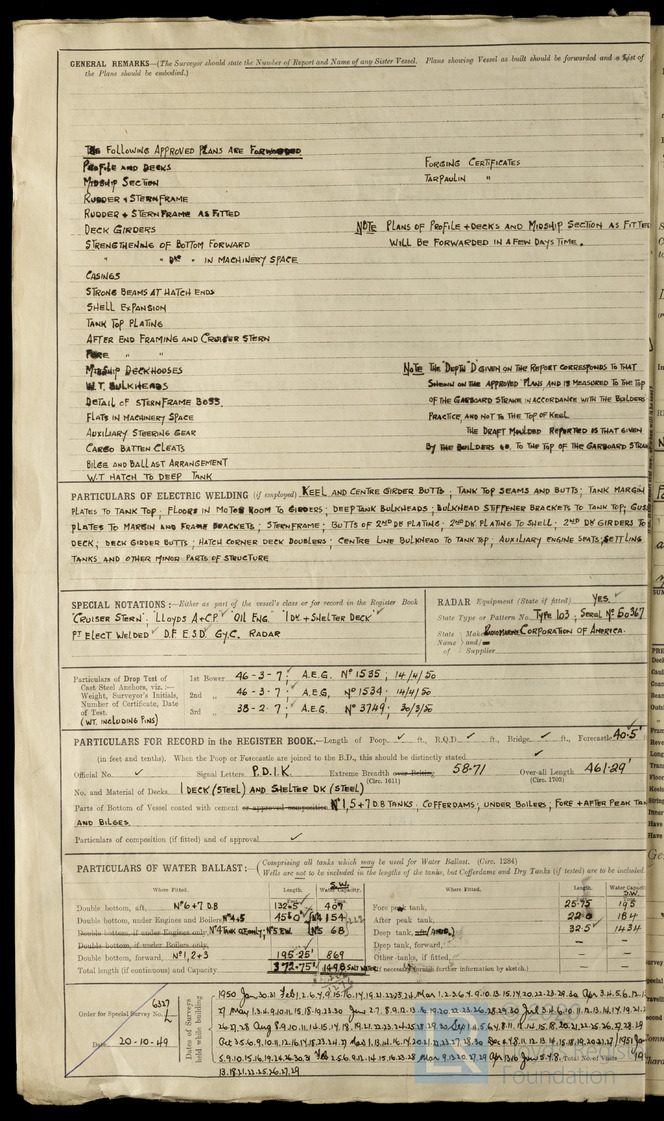 GENERAL REMARKS—(The Surveyor should state the Number of Report and Name of any Sister Vessel. Plans showing Vessel as built should be forwarded and a list of
the Plans should be embodied.)
THE FOLLOWING APPROVED PLANS ARE FORWARDED
PROFILE AND DECKS
MIDSHIP SECTION
RUDDER + STERNFRAME
RUDDER + STERNFRAME AS FITTED
DECK GIRDERS
STRENGTHENING OF BOTTOM FORWARD
" " DO " IN MACHINERY SPACE
CASINGS
STRONG BEAMS AT HATCH ENDS
SHELL EXPANSION
TANK TOP PLATING
AFTER END FRAMING AND CRUISER STERN
FORE " "
MIDSHIP DECKHOUSES
W.T. BULKHEADS
DETAIL OF STERNFRAME BOSS.
FLATS IN MACHINERY SPACE
AUXILIARY STEERING GEAR
CARGO BATTEN CLEATS
BILGE AND BALLAST ARRANGEMENT
W.T HATCH TO DEEP TANK
FORGING CERTIFICATES
TARPAULIN "
NOTE PLANS OF PROFILE + DECKS AND MIDSHIP SECTION AS FITTED
WILL BE FORWARDED IN A FEW DAYS TIME.
NOTE THE "DEPTH "D" GIVEN ON THE REPORT CORRESPONDS TO THAT
SHEWN ON THE APPROVED PLANS AND IS MEASURED TO THE TOP
OF THE GARBOARD STRAKE IN ACCORDANCE WITH THE BUILDERS
PRACTICE, AND NOT TO THE TOP OF KEEL.
THE DRAFT MOULDED REPORTED IS THAT GIVEN
BY THE BUILDERS TO THE TOP OF THE GARBOARD
PARTICULARS OF ELECTRIC WELDING (if employed) KEEL AND CENTRE GIRDER BUTTS; TANK TOP SEAMS AND BUTTS; TANK MARGIN
PLATES TO TANK TOP; FLOORS IN MOTOR ROOM TO GIRDERS; DEEPTANK BULKHEADS; BULKHEAD STIFFENER BRACKETS TO TANK TOP;
PLATES TO MARGIN AND FRAME BRACKETS; STERNFRAME; BUTTS OF 2ND DK PLATING; 2ND DK PLATING TO SHELL; 2ND DK GIRDERS TO
DECK; DECK GIRDER BUTTS; HATCH CORNER DECK DOUBLERS; CENTRE LINE BULKHEAD TO TANK TOP; AUXILIARY ENGINE SEATS; SETTLING
TANKS AND OTHER MINOR PARTS OF STRUCTURE
SPECIAL NOTATIONS:—Either as part of the vessel's class or for record in the Register Book
"CRUISER STERN", "LLOYDS A+CP" OIL ENG. "1 DK + SHELTER DECK"
PT ELECT WELDED D.F. E.S.D. GY.C. RADAR
RADAR Equipment (State if fitted) YES.
State Type or Pattern No. TYPE 103; SERIAL No 50367
State Name of Maker and/or Supplier RADIOMARINE CORPORATION OF AMERICA.
Particulars of Drop Test of
Cast Steel Anchors, viz.:—
Weight, Surveyor's Initials,
Number of Certificate, Date
of Test.
(WT. INCLUDING PINS)
1st Bower 46-3-7; A.E.G. No 1535; 14/4/50
2nd " 46-3-7; A.E.G, No 1534. 14/4/50
3rd " 38-2-7; A.E.G. No 3749; 30/3/50
PARTICULARS FOR RECORD in the REGISTER BOOK.—Length of Poop, ✓ ft., R.Q.D. ✓ ft., Bridge ✓ ft., Forecastle 40.5'
(in feet and tenths). When the Poop or Forecastle are joined to the B.D., this should be distinctly stated. ✓
Official No. ✓ Signal Letters P.D.I.K. Extreme Breadth over Belting 58.71 Over-all Length 461.29'
(Circ. 1611) (Circ. 1703)
No. and Material of Decks 1 DECK (STEEL) AND SHELTER DK (STEEL)
Parts of Bottom of Vessel coated with cement or approved composition No 1, 5 + 7 D B TANKS, COFFERDAMS; UNDER BOILERS; FORE + AFTER PEAK TAN
AND BILGES.
Particulars of composition (if fitted) and of approval ✓
PARTICULARS OF WATER BALLAST:—(Comprising all tanks which may be used for Water Ballast. (Circ. 1284)
Wells are not to be included in the lengths of the tanks, but Cofferdams and Dry Tanks (if tested) are to be included.
Where Fitted. Length. S.W. Water Capacity.
Double bottom, aft, No 6+7 DB 132.5' 409
Double bottom, under Engines and Boilers, No 4+5 45.0' 154
Double bottom, if under Engines only, No 5 68
Double bottom, if under Boilers only,
Double bottom, forward, No 1, 2+3 195.25' 869
Total length (if continuous) and Capacity 372.75' 1498
Where Fitted. Length. Water Capacity S.W.
Fore peak tank, 25.75 195
After peak tank, 22.0 184
Deep tank, 32.5' 1434
Deep tank, forward, — —
Other tanks, if fitted, — —
(If necessary furnish further information by sketch.)
Order for Special Survey No. 6327
Date 20-10-49
Dates of Surveys held while building
1950 Jan 30.31 Feb 1.2.6.7.9.15.16.17.19.21.22.23.24 Mar 1.2.3.6.7.9.10.13.15.17.20.22.23.29.30 Apr 3.4.5.6.12
Total No. of Visits
13.18.21.22.25.26.27.29
Lloyd's Register
Foundation